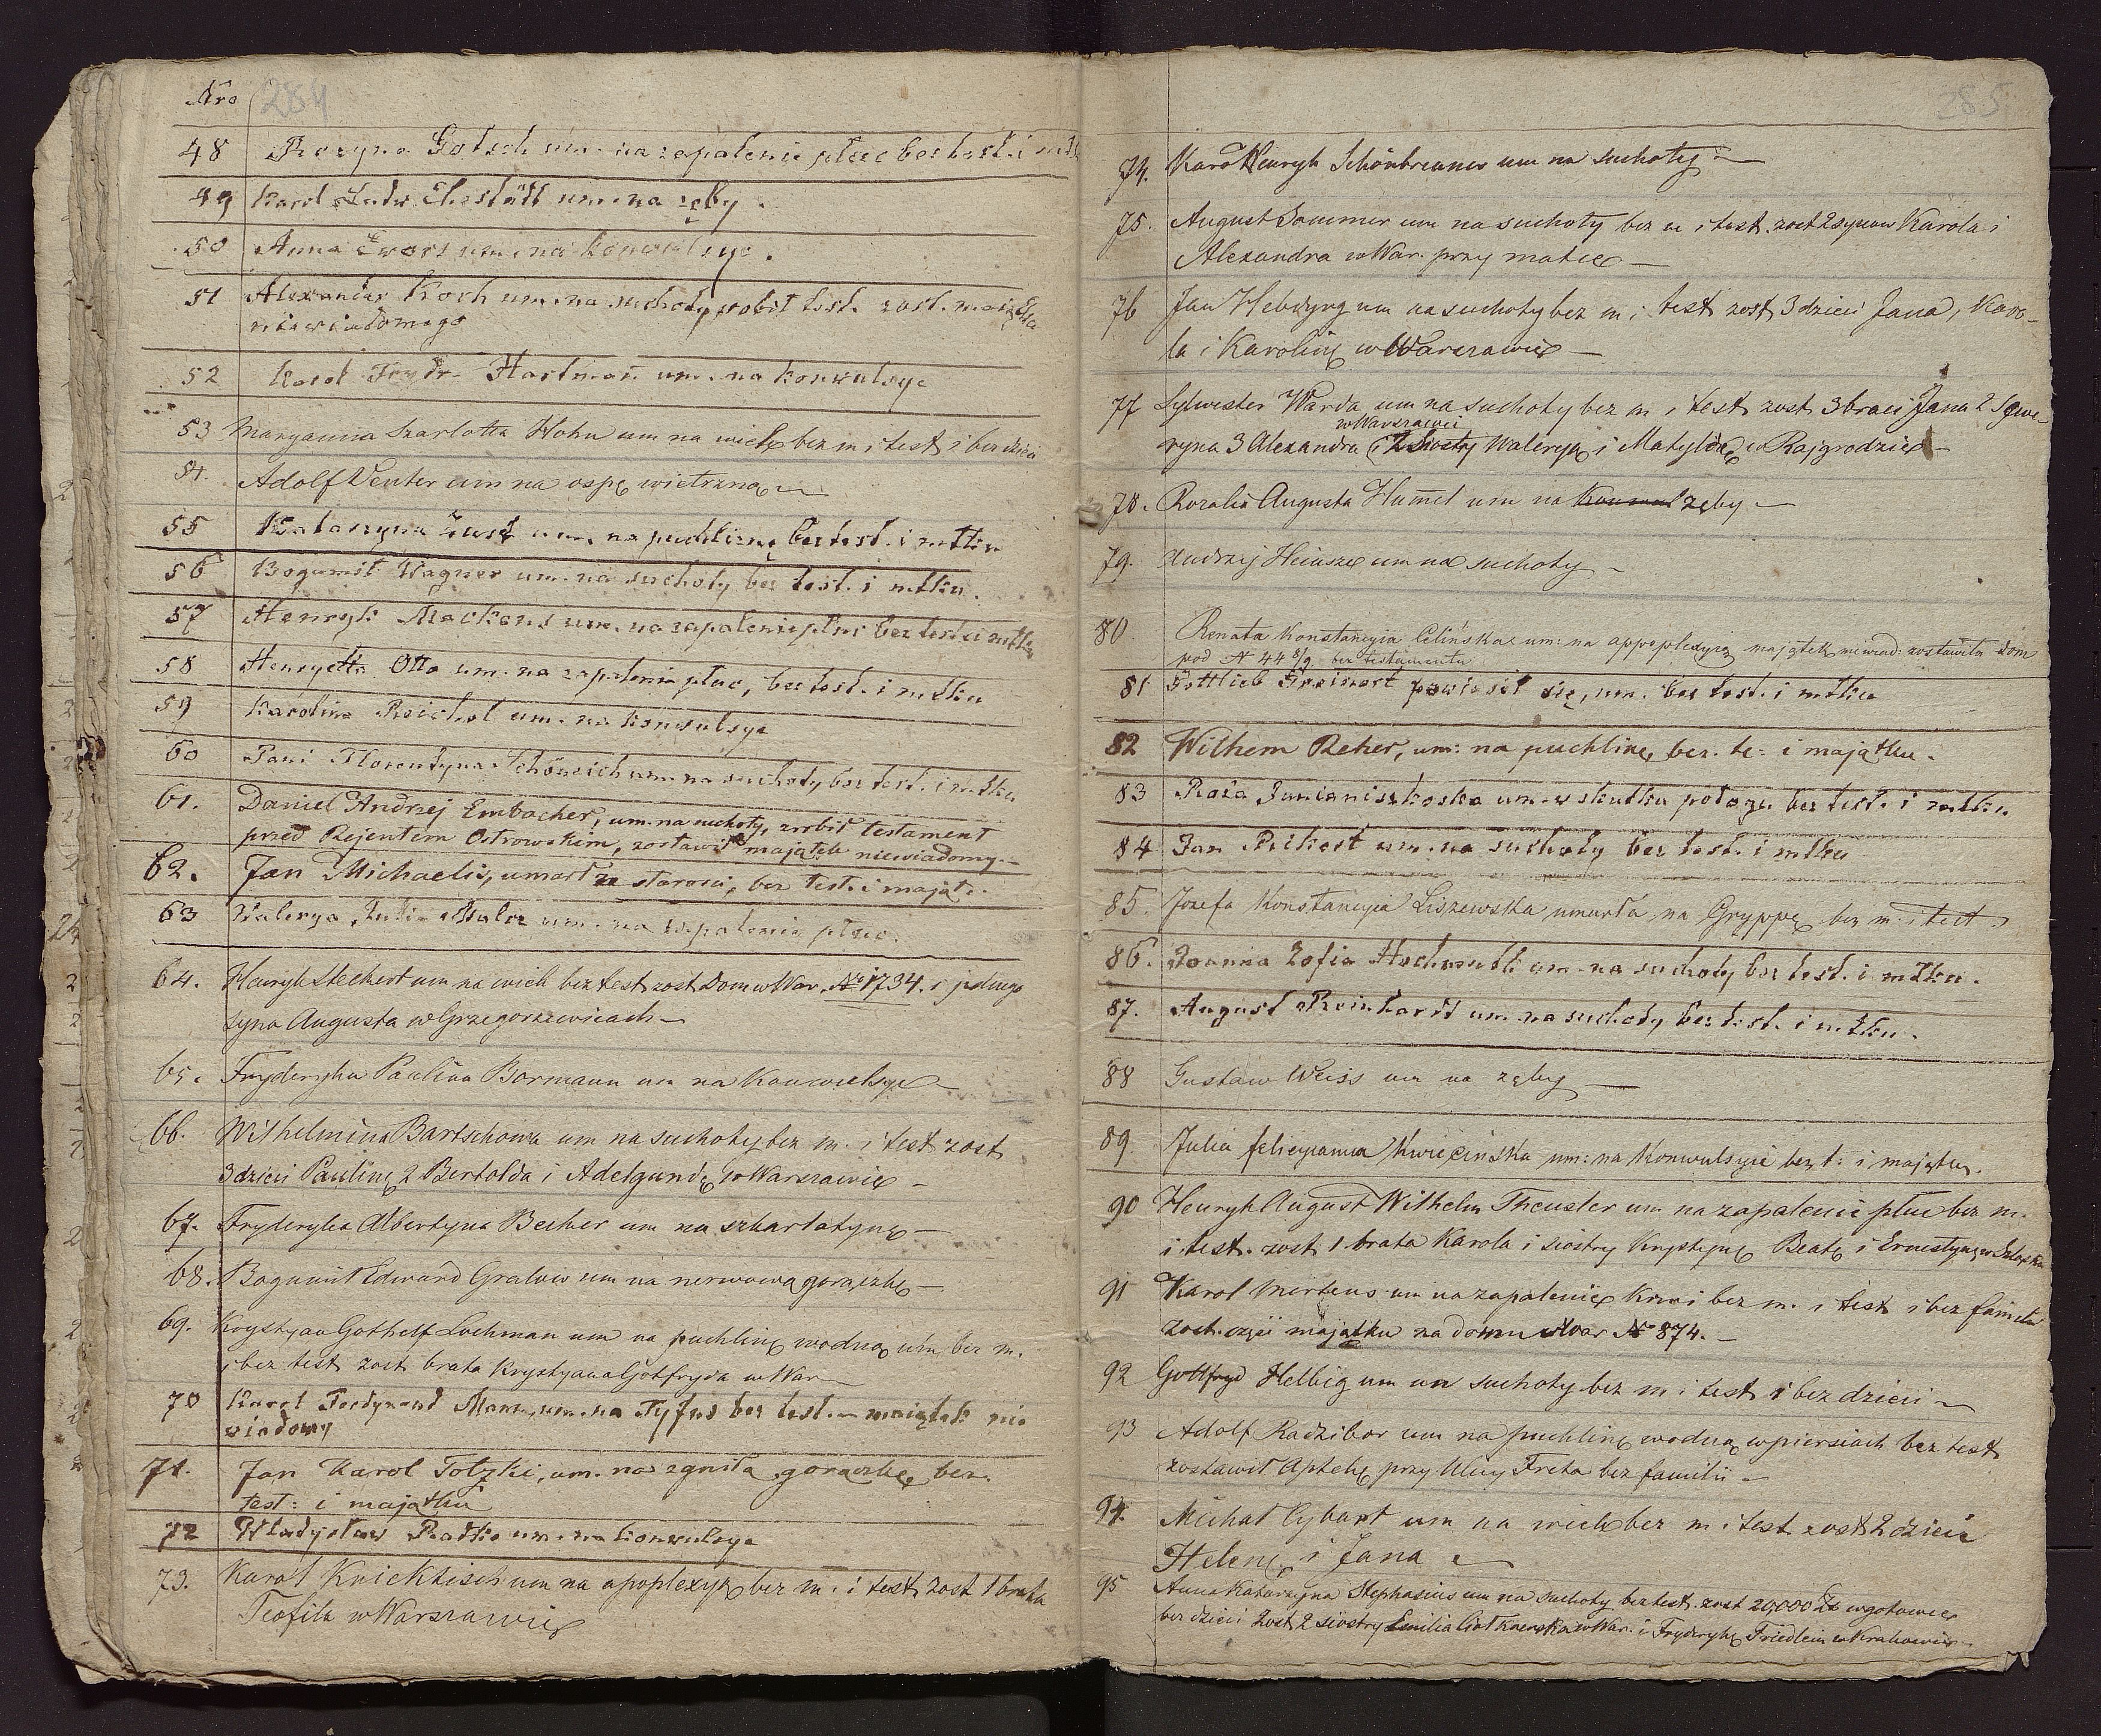 Nro 284
48 Rozyna Gotsch um. na zapalenie płuc bez test. i mtk
49 Karol Ludw. um. na zęby.
50 Anna Ewors um. na konwulsye.
51 Alexander Koch um. na suchoty, zrobił test. zost. majątku
niewiadomego
52 Karol Frydr. Hartman um. na konwulsye
53 Maryanna Szarlotta Hohn um na wiek bez m i test i bez dzieci
54. Adolf Venter um na ospę wietrzną —
55 Katarzyna um. na puchlinę bez test. i mtku
56 Bogumił Wagner um. na suchoty bez test. i mtku.
57 Henryk Mackens um. na zapalenie płuc bez test i mtku
58 Henryetta Otto um. na zapalenia płuc, bez test. i mtku
59 Karolina Reichel um. na konwulsye
60 Pani Florentyna Schönaich um. na suchoty bez test. i mtku
61. Daniel Andrzej Embacher, um. na suchoty, zrobił testament
przed Rejentem Ostrowskim, zostawił majątek niewiadomy. —
62. Jan Michaelis, umarł ze starości, bez test. i mająt.
63 Walerya Julia um. na zapalenia płuc.
64. Henryk Stechert um na wiek bez test zost Dom w War. No 1734. i jednego
syna Augusta w Grzegorzewicach —
65. Fryderyka Paulina Bormann um na Konwulsye —
66. Wilhelmina Bartschowa um na suchoty bez m. i test zost
3 dzieci Paulinę 2 Bertolda i Adelgundę w Warszawie —
67. Fryderyka Albertyna Becher um na szkarlatynę —
68. Bogumił Edward Gralow um na nerwową gorączkę —
69. Krystyan Gothelf Lochman um na puchlinę wodną um bez m.
i bez test zost brata Krystyana Gotfryda w War —
70 Karol Ferdynand um. na Tyfus bez test. — majątek nie
wiadomy
71. Jan Karol Totzki, um. na zgniłą gorączkę, bez.
test: i majątku
72 Władysław Radtke um. na konwulsye
73. Karol Knicktisch um na apoplexyę bez m. i test zost 1 brata
Teofila w Warszawie
285
74. Karol Henryk um na suchoty —
75. August Sommer um na suchoty bez m i test. zost 2 synów Karola i
Alexandra w War. przy matce —
76 Jan Hebdzyng um na suchoty bez m i test zost 3 dzieci Jana, Karo-
la i Karolinę w Warszawie —
77 Sylwester Warda um na suchoty bez m i test zost 3 braci Jana 2 Sewe-
w Warszawie
ryna 3 Alexandra i 2 Siostry Waleryę i Matyldę w Rajgrodzie —
78. Rozalia Augusta Hummel um na Konwul zęby —
79. Andrzej Heinsze um na suchoty —
80 Renata Konstancyia Celińska um: na appoplexyią majątek niewiad: zostawiła dom
pod N 44 8/9 bez testamentu
81 Gottlieb Greinert powiesił się, um. bez test. i mtku
82 Wilhem Reher, um: na puchlinę, bez. te: i majątku.
83 Roża um. w skutku połogu bez test. i mtku.
84 Jan um. na suchoty bez test. i mtku
85. Jozefa Konstancyia Liszewska umarła na Gryppę bez m. i test.
86. Joanna Zofia um. na suchoty bez test. i mtku.
87. August Reinhardt um. na suchoty bez test. i mtku.
88 Gustaw Weiss um na zęby —
89. Julia felicyanna Kwiecińska um: na Konwulsyie bez t: i majątku.
90 Henryk August Wilhelm Theusler um na zapalenie płuc bez m.
i test. zost 1. brata Karola i siostry Krystynę Beatę i Ernestynę w
91 Karol Mertens um na zapalenie krwi bez m. i test i bez familii
zost. część majątku na domu w War No 874. —
92 Gottfryd Helbig um na suchoty bez m i test i bez dzieci —
93 Adolf Radzibor um na puchlinę wodną w piersiach bez test
zostawił Aptekę przy Ulicy Freta bez familii —
94. Michał Cybart um na wiek bez m i test zost 2 dzieci
Helenę i Jana —
95 Anna Katarzyna Stephasius um na suchoty bez test. zost 20,000 Zł w gotowce
bez dzieci zost 2 siostry Emilia w War. i Fryderykę Friedlein w Krakowie —